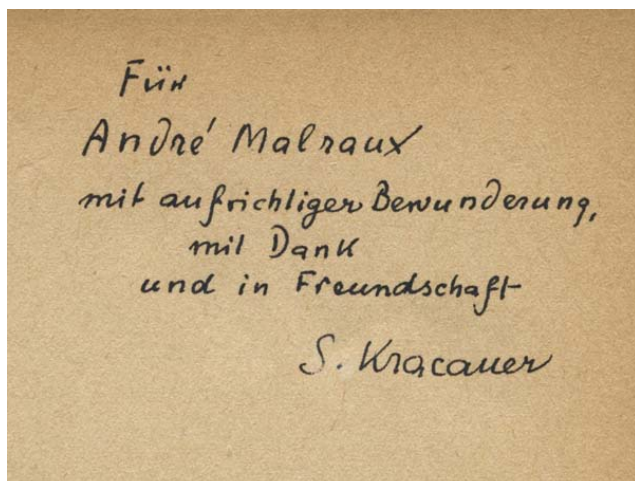 Für
André Malraux
mit aufrichtiger Bewunderung,
mit Dank
und in Freundschaft
S. Kracauer